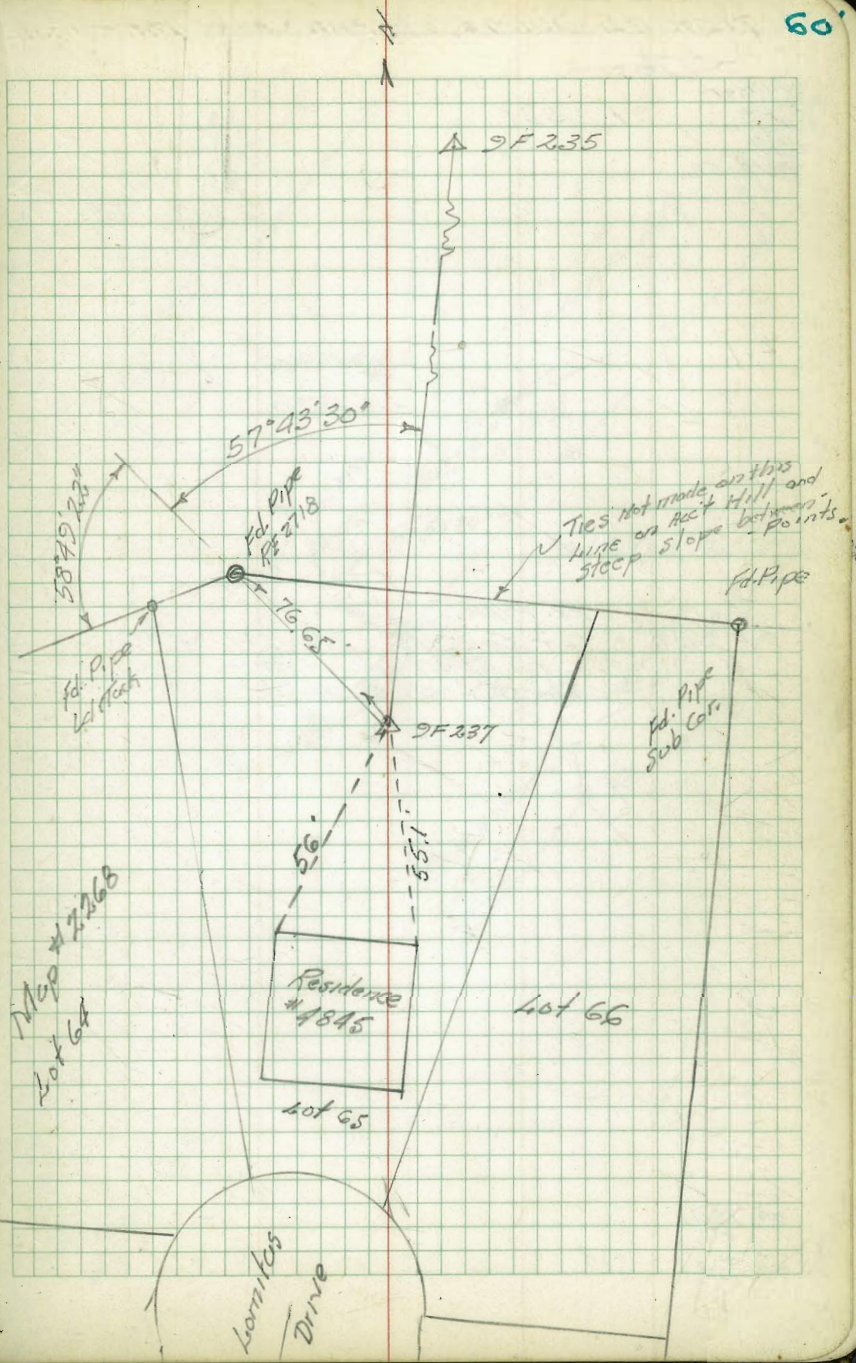 60
N
9F 235
57°43'30"
58°49'22"
Fd. Pipe
RE 2718
Ties Not made on this
Line on Acc't Hill and
Steep Slope between
Points.
Fd. Pipe
76.65'
Fd. Pipe
9F 237
Fd. Pipe
Sub Cor.
56'
55.1'
Map # 2268
Lot 64
Residence
# 4845
Lot 66
Lot 65
Lomitas
Drive